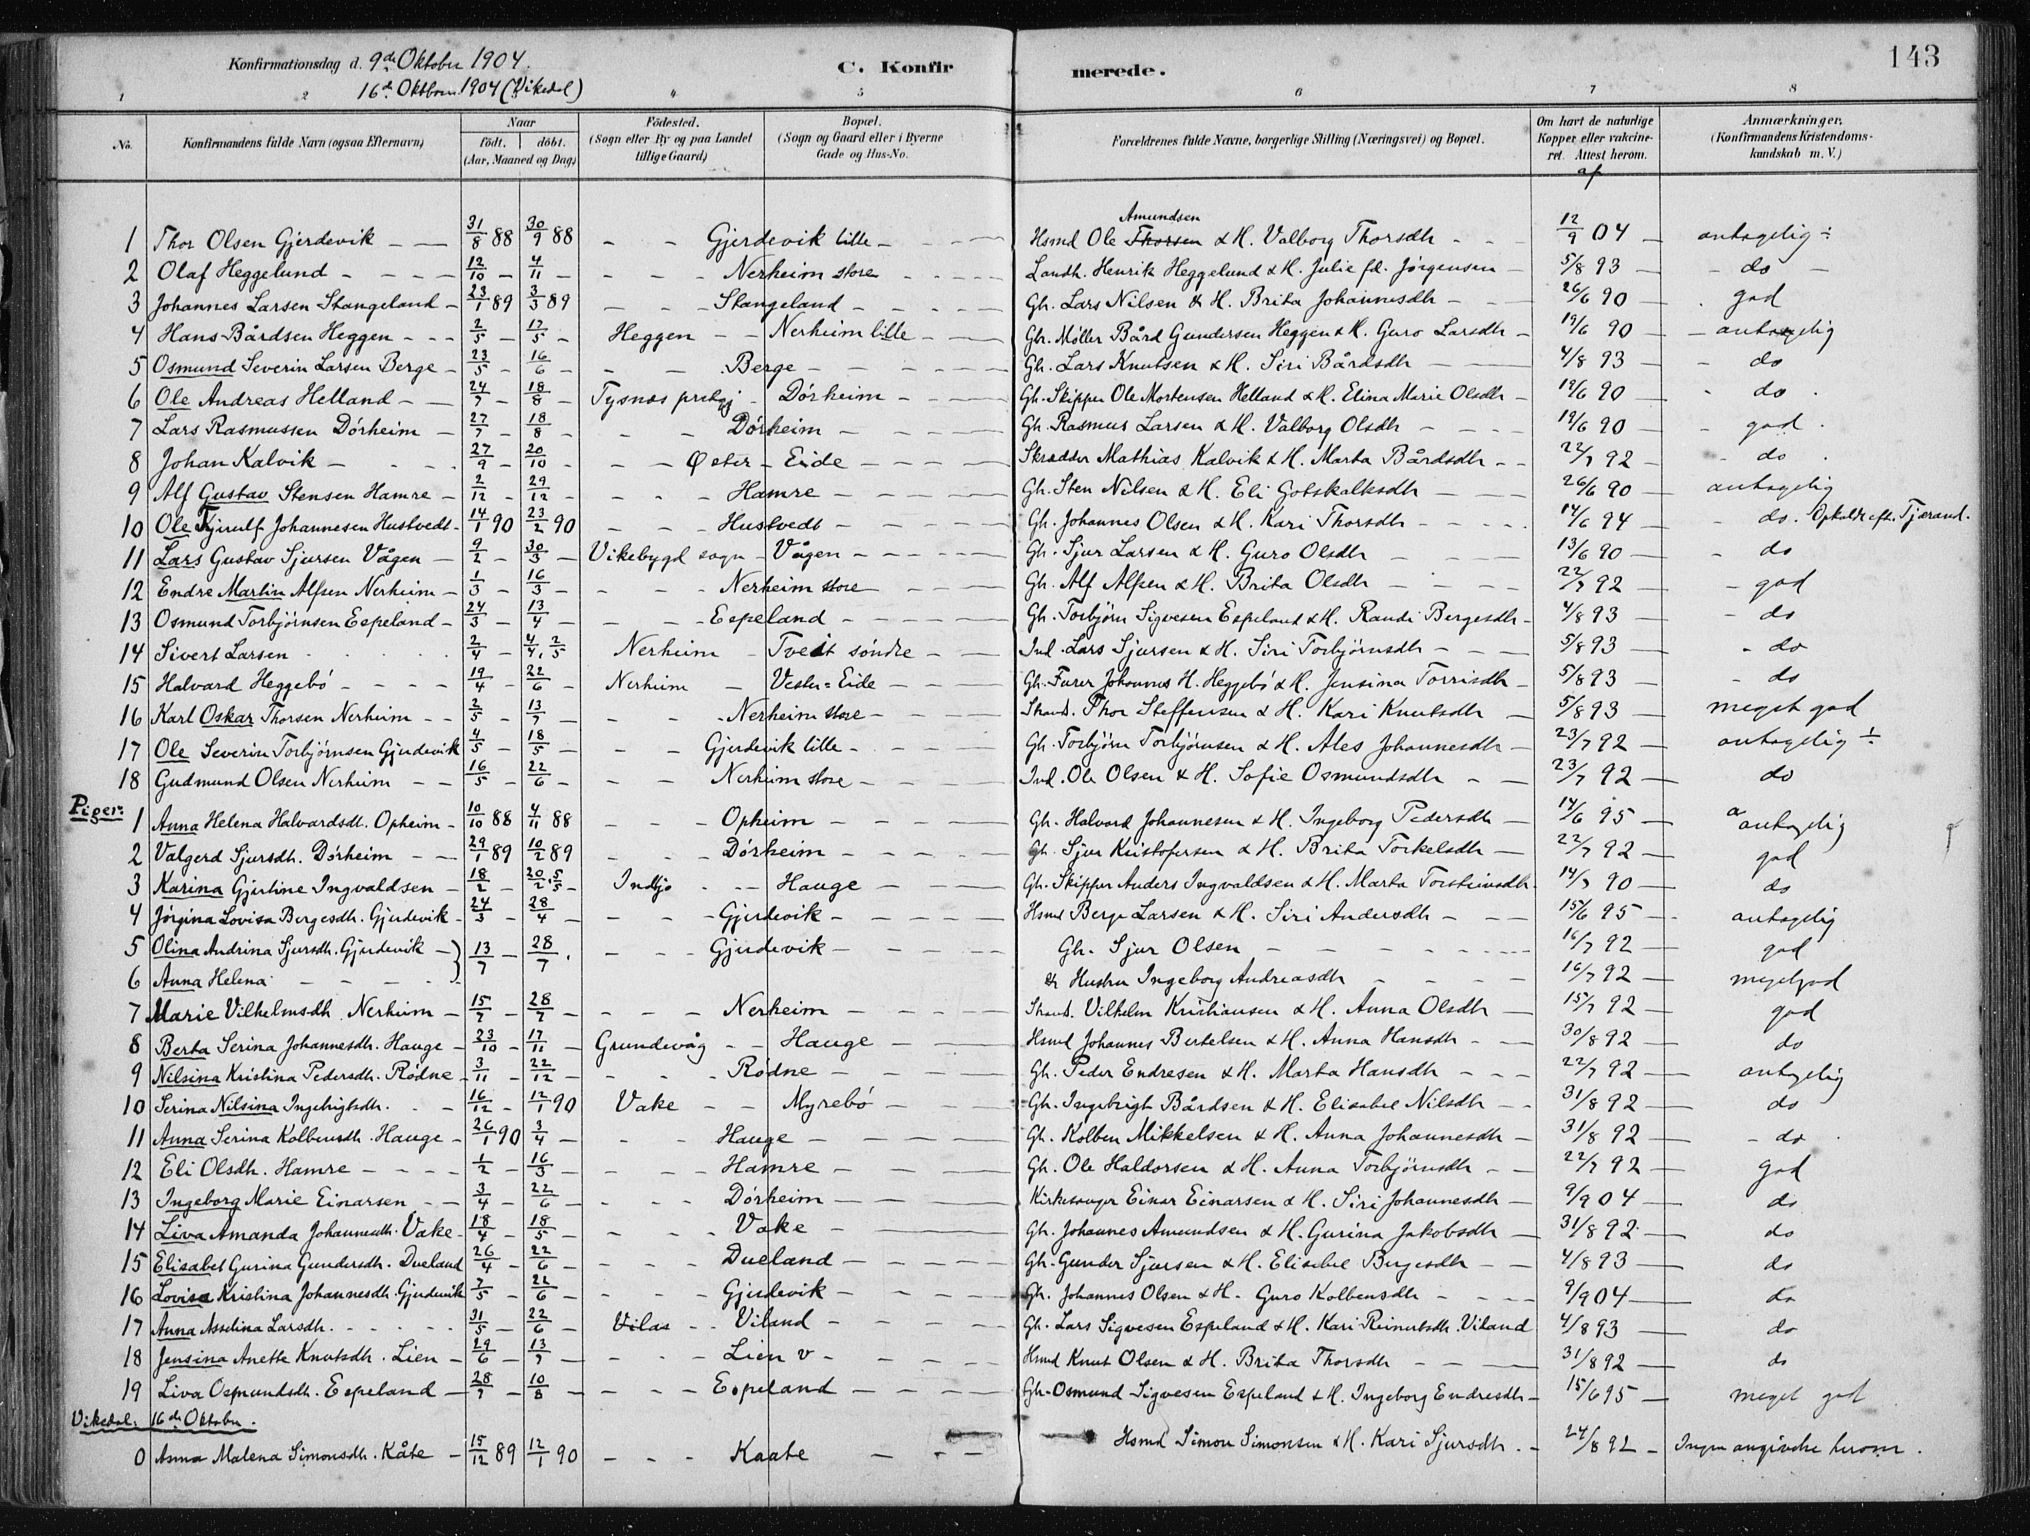 Konfirmationsdag d. 9de Oktober 1904.
16de Oktbr. 1904 (Vikedal)
C. Konfirmerede.
143
1 2 4 5 6 7 8
No. Konfirmandens fulde Navn (ogsaa Efternavn) Naar födt. döbt. (Aar, Maaned og Dag) Födested. (Sogn eller By og paa Landet tillige Gaard) Bopæl. (Sogn og Gaard eller i Byerne Gade og Hus-No. Forældrenes fulde Navne, borgerlige Stilling (Næringsvei) og Bopæl. Om havt de naturlige Kopper eller vakcineret. Attest herom. af Anmærkninger. (Konfirmandens Kristendomskundskab m. V.)
1 Thor Olsen Gjerdevik 31/8 88 30/9 88 - - Gjerdevik lille Hsmd Ole Thorsen Amundsen & H. Valborg Thorsdtr 12/9 04 antagelig ÷
2 Olaf Heggelund 12/10 - 4/11 - - - Nerheim store Landh. Henrik Heggelund & H. Julie fd. Jørgensen 5/8 93 - do -
3 Johannes Larsen Stangeland 23/1 89 3/3 89 - - Stangeland Gb. Lars Nilsen & H. Brita Johannesdtr 26/6 90 god
4 Hans Bårdsen Heggen 2/5 - 17/5 - Heggen - - Nerheim lille Gbr. Møller Bård Gundersen Heggen & H. Guro Larsdtr 19/6 90 antagelig
5 Osmund Severin Larsen Berge 23/5 - 16/6 - - - Berge Gb. Lars Knutsen & H. Siri Bårdsdtr 4/8 93 do
6 Ole Andreas Helland 24/7 - 18/8 - Tysnæs prstgj - Dörheim Gb. Skipper Ole Mortensen Helland & H. Elina Marie Olsdtr 19/6 90 do
7 Lars Rasmussen Dörheim 27/7 - 18/8 - - - Dörheim Gb. Rasmus Larsen & H. Valborg Olsdtr 19/6 90 god
8 Johan Kalvik 27/9 - 20/10 - - - Øster-Eide Skrædder Mathias Kalvik & H. Marta Bårdsdtr 22/7 92 do
9 Alf Gustav Stensen Hamre 2/12 - 29/12 - - - Hamre Gb. Sten Nilsen & H. Eli Gotskalksdtr 26/6 90 antagelig
10 Ole Tjerulf Johannesen Hustvedt 14/1 90 23/2 90 - - Hustvedt Gb. Johannes Olsen & H. Kari Thorsdtr 14/6 94 do. Opkaldt eft. Tjærand.
11 Lars Gustav Sjursen Vågen 9/2 - 30/3 - Vikebygd sogn - Vågen Gb. Sjur Larsen & H. Guro Olsdtr 13/6 90 - do
12 Endre Martin Alfsen Nerheim 1/3 - 16/3 - - - Nerheim store Gb. Alf Alfsen & H. Brita Olsdtr 22/7 92 - god
13 Osmund Torbjørnsen Espeland 24/3 - 13/4 - - - Espeland Gb. Torbjørn Sigvesen Espeland & H. Randi Bergesdtr 4/8 93 - do
14 Sivert Larsen 2/4 - 4/4. 2/5 Nerheim - Tveit söndre Ind. Lars Sjursen & H. Siri Torbjörnsdtr 5/8 93 - do
15 Halvard Heggebö 19/4 - 22/6 - Nerheim - Vestre-Eide Gb. Furer Johannes H. Heggebö & H. Jensina Torrisdtr 5/8 93 - do
16 Karl Oskar Thorsen Nerheim 2/5 - 13/7 - - - Nerheim store Strands. Thor Steffensen & H. Kari Knutsdtr 5/8 93 meget god
17 Ole Severin Torbjörnsen Gjerdevik 4/5 - 18/5 - - - Gjerdevik lille Gb. Torbjörn Torbjörnsen & H. Ales Johannesdtr 23/7 92 antagelig ÷
18 Gudmund Olsen Nerheim 16/5 - 22/6 - - - Nerheim store Ind. Ole Olsen & H. Sofie Osmundsdtr 23/7 92 do
Piger:
1 Anna Helena Halvardsdt. Opheim 10/10 88 4/11 88 - - Opheim Gb. Halvard Johannesen & H. Ingeborg Pedersdtr 14/6 95 antagelig
2 Valgerd Sjursdtr. Dörheim 29/1 89 10/2 89 - - Dörheim Gb. Sjur Kristofersen & H. Brita Torkelsdtr 22/7 92 god
3 Karina Gjertine Ingvaldsen 18/2 - 20/2. 5/5 - Indbjo - - Hauge Gb. Skipper Anders Ingvaldsen & H. Marta Torsteinsdtr 14/7 90 do
4 Jörgina Lovisa Bergesdtr. Gjerdevik 24/3 - 28/4 - - - Gjerdevik Hsmd Berge Larsen & H. Siri Andersdtr 15/6 95 antagelig
5 Olina Andrina Sjursdtr. Gjerdevik } 13/7 - 28/7. - - Gjerdevik Gb. Sjur Olsen 16/7 92 god
6 Anna Helena & Hustru Ingeborg Andreasdtr 16/7 92 megetgod
7 Marie Vilhelmsdtr. Nerheim 15/7 - 28/7 - - - Nerheim Strands. Vilhelm Kristiansen & H. Anna Olsdtr 15/7 92 god
8 Berta Serina Johannesdtr. Hauge 23/10 - 17/11 - Grundevåg - - Hauge Hsmd Johannes Bertelsen & H. Anna Hansdtr 30/8 92 do
9 Nilsina Kristina Pedersdtr. Rödne 3/11 - 22/12 - - - Rödne Gb. Peder Endresen & H. Marta Hansdtr 22/7 92 antagelig
10 Serina Nilsina Ingebrigtsdtr. 16/12 - 12/1 90 Vake - - Myrebö Gb. Ingebrigt Bårdsen & H. Elisabet Nilsdtr 31/8 92 do
11 Anna Serina Kolbensdtr Hauge 26/1 90 3/4 - - - Hauge Gb. Kolben Mikkelsen & H. Anna Johannesdtr 31/8 92 - do
12 Eli Olsdtr. Hamre 1/2 - 16/3 - - - Hamre Gb. Ole Haldorsen & H. Anna Torbjörnsdtr 22/7 92 god
13 Ingeborg Marie Einarsen 3/4 - 22/6 - - - Dörheim Kirkesanger Einar Einarsen & H. Siri Johannesdtr 9/9 04 do
14 Liva Amanda Johannesdtr. Vake 18/4 - 18/5 - - - Vake Gb. Johannes Amundsen & H. Gurina Jakobsdtr 31/8 92 do
15 Elisabet Gurina Gundersdtr. Dueland 26/4 - 22/6 - - - Dueland Gb. Gunder Sjursen & H. Elisabet Bergesdtr 4/8 93 do
16 Lovisa Kristina Johannesdtr. Gjerdevik 7/5 - 22/6 - - - Gjerdevik Gb. Johannes Olsen & H. Guro Kolbensdtr 9/9 04 do
17 Anna Asselina Larsdtr. 31/5 - 22/6 - Vilas - - Viland Gb. Lars Sigvesen Espeland & H. Kari Reinertsdtr. Viland 4/8 93 do
18 Jensina Anette Knutsdtr. Lien 29/6 - 13/7 - - - Lien v - Hsmd Knut Olsen & H. Brita Thorsdtr 31/8 92 do
19 Liva Osmundsdtr. Espeland 28/7 - 10/8 - - - Espeland Gb. Osmund Sigvesen Espeland & H. Ingeborg Endresdtr 15/6 95 meget god
Vikedal: 16de Oktober.
0 Anna Malena Simonsdtr. Kåte 15/12 89 12/1 90 - - Kaate Hsmd Simon Simonsen & H. Kari Sjursdtr. 24/8 92 Ingen angivelse herom.